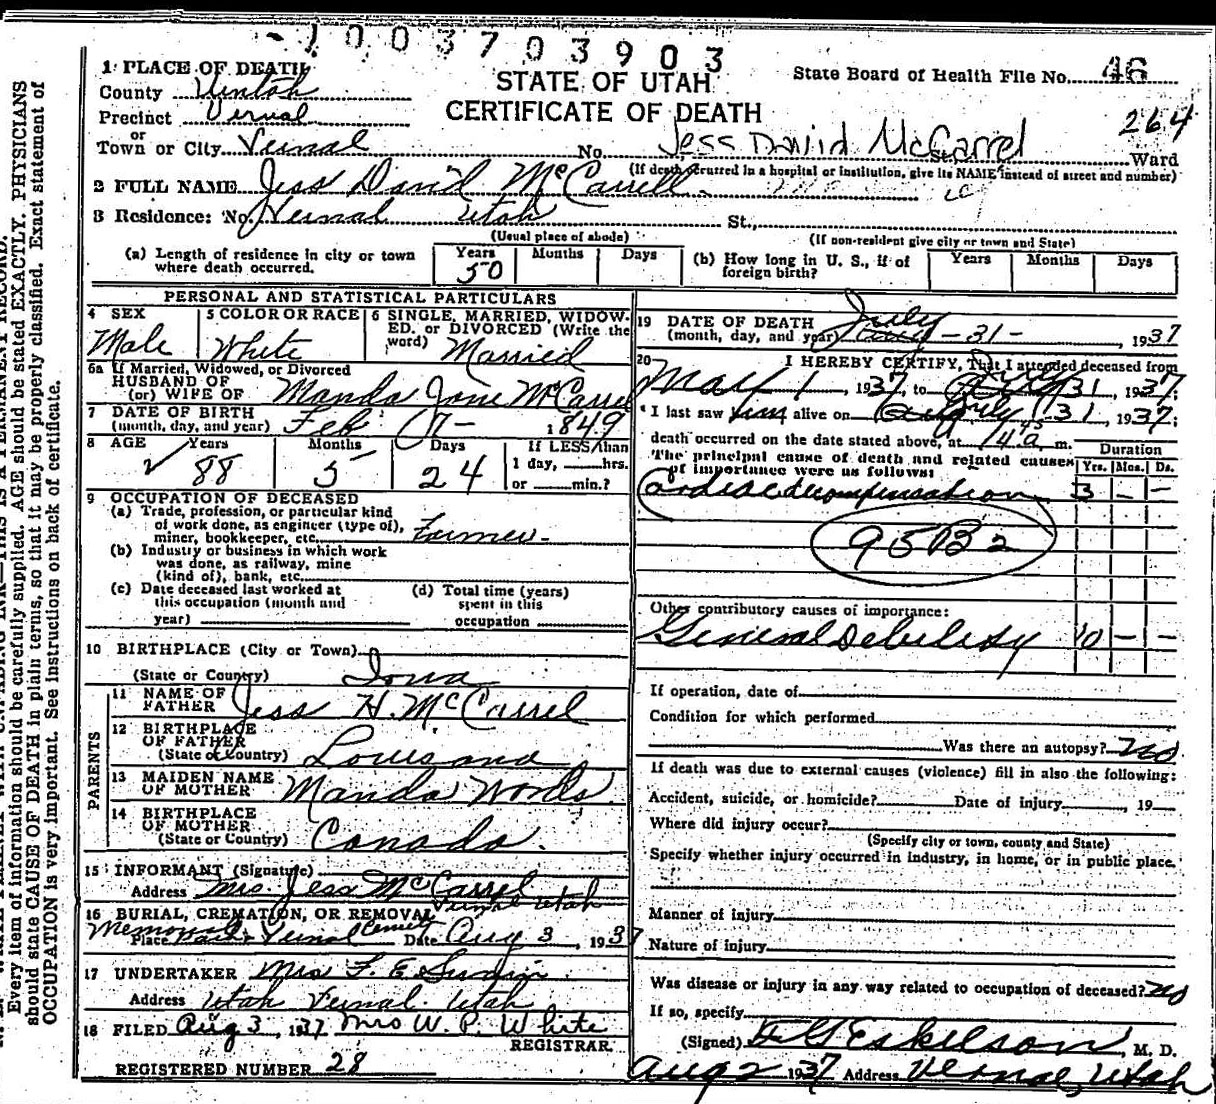 - 1 0 0 3 7 0 3 9 0 3
1 PLACE OF DEATH
STATE OF UTAH
CERTIFICATE OF DEATH
State Board of Health File No. 46
264
County Uintah
Precinct Vernal
or
Town or City Vernal No. Jess David McCarrel St. Ward
(If death occurred in a hospital or institution, give its NAME instead of street and number)
2 FULL NAME Jess David McCarrell
3 Residence: No. Vernal Utah St.,
(Usual place of abode) (If non-resident give city or town and State)
(a) Length of residence in city or town where death occurred. Years 50 Months Days
(b) How long in U. S., if of foreign birth? Years Months Days
PERSONAL AND STATISTICAL PARTICULARS
4 SEX Male
5 COLOR OR RACE White
6 SINGLE, MARRIED, WIDOWED, or DIVORCED (Write the word) Married
6a If Married, Widowed, or Divorced
HUSBAND OF
(or) WIFE OF Manda Jane McCarrel
7 DATE OF BIRTH
(month, day, and year) Feb 7- 1849
8 AGE Years 88 Months 5 Days 24
If LESS than
1 day, hrs.
or min.?
9 OCCUPATION OF DECEASED
(a) Trade, profession, or particular kind
of work done, as engineer (type of),
miner, bookkeeper, etc. Farmer-
(b) Industry or business in which work
was done, as railway, mine
(kind of), bank, etc.
(c) Date deceased last worked at
this occupation (month and
year)
(d) Total time (years)
spent in this
occupation
10 BIRTHPLACE (City or Town)
(State or Country) Iowa
PARENTS
11 NAME OF
FATHER Jess H. McCarrel
12 BIRTHPLACE
OF FATHER
(State or Country) Louisana
13 MAIDEN NAME
OF MOTHER Manda Woods
14 BIRTHPLACE
OF MOTHER
(State or Country) Canada.
15 INFORMANT (Signature)
Address Mrs. Jess McCarrel
Vernal Utah
16 BURIAL, CREMATION, OR REMOVAL
Memorial
Place Park Vernal Date Aug 3, 1937
17 UNDERTAKER Mrs F. E.
Address Utah Vernal. Utah
18 FILED Aug 3, 1937 Mrs W. P. White
REGISTRAR.
REGISTERED NUMBER 28
19 DATE OF DEATH
(month, day, and year) July -31-, 1937
20 I HEREBY CERTIFY, That I attended deceased from
May 1, 1937, to July 31, 1937;
I last saw him alive on July 31, 1937;
death occurred on the date stated above, at a m.
The principal cause of death and related causes
of importance were as follows:
Duration
Yrs. Mos. Ds.
Cardiac decompensation 3 - -
95B2
Other contributory causes of importance:
General Debility 10 - -
If operation, date of
Condition for which performed
Was there an autopsy? No
If death was due to external causes (violence) fill in also the following:
Accident, suicide, or homicide? Date of injury, 19
Where did injury occur?
(Specify city or town, county and State)
Specify whether injury occurred in industry, in home, or in public place.
Manner of injury
Nature of injury
Was disease or injury in any way related to occupation of deceased? No
If so, specify
(Signed) Eskelson, M. D.
Aug 2 1937 Address Vernal, Utah
Every item of information should be carefully supplied. AGE should be stated EXACTLY. PHYSICIANS
should state CAUSE OF DEATH in plain terms, so that it may be properly classified. Exact statement of
OCCUPATION is very important. See instructions on back of certificate.